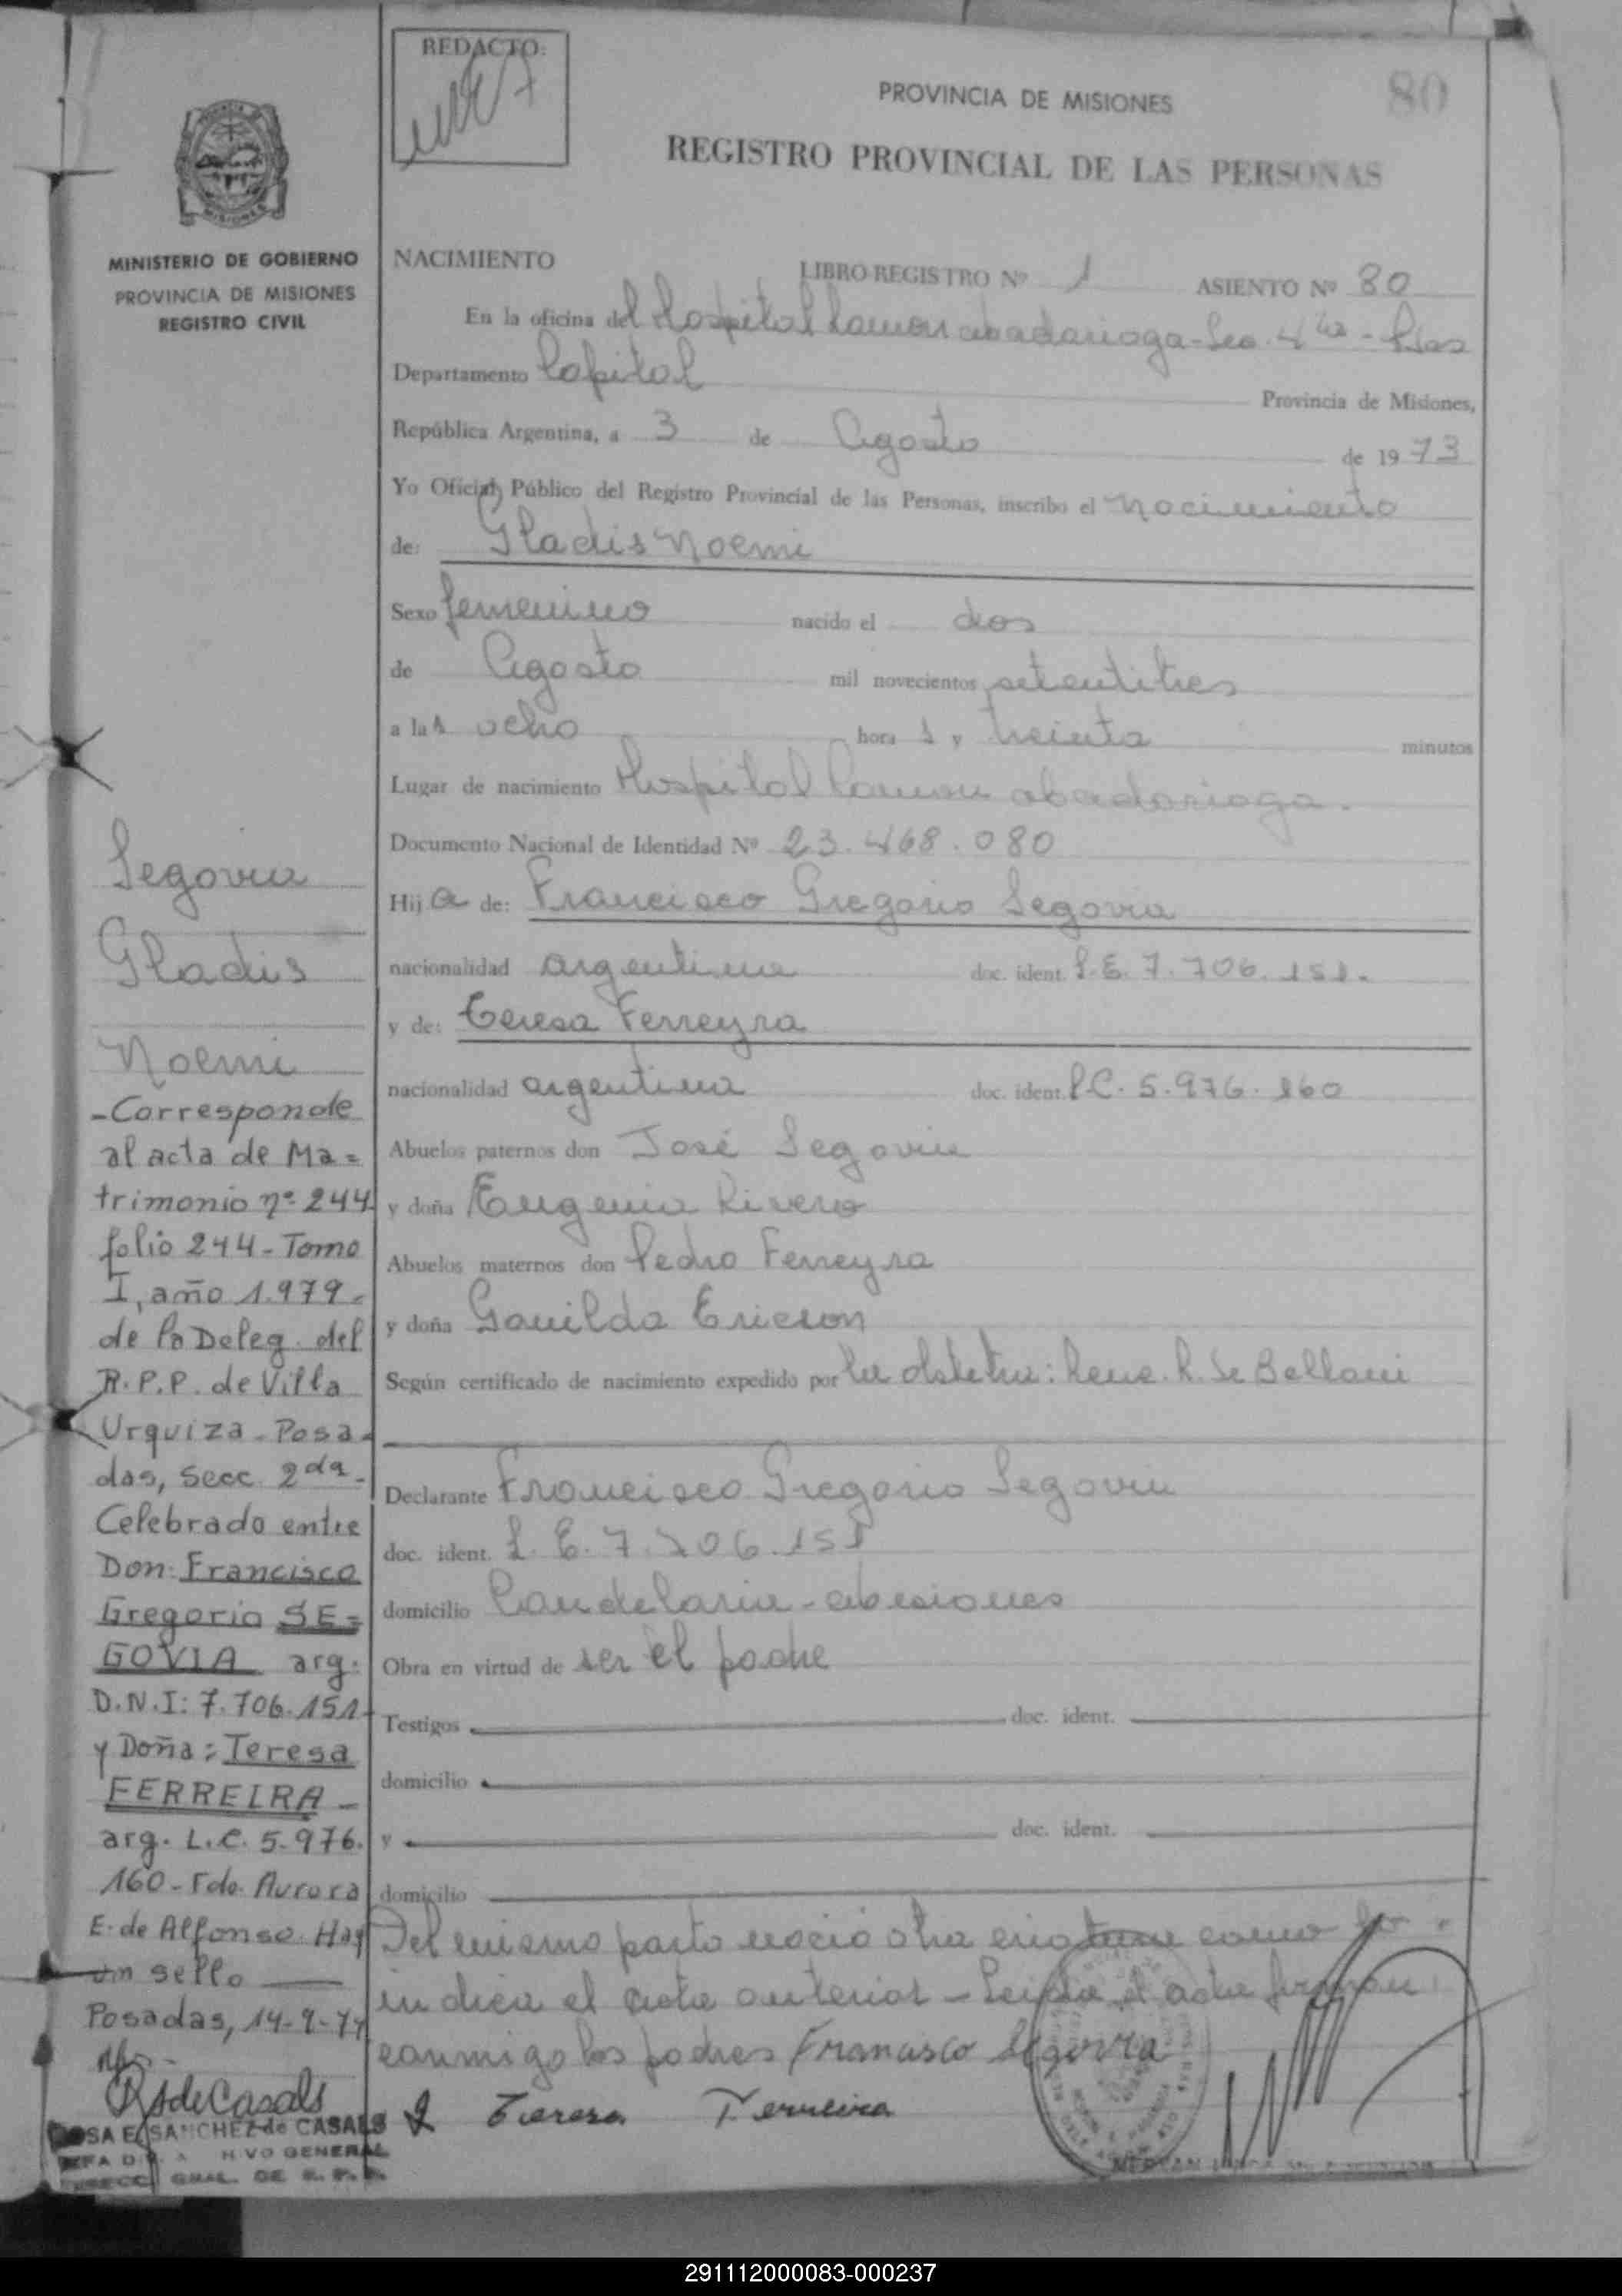 REDACTO:
PROVINCIA DE MISIONES
80
REGISTRO PROVINCIAL DE LAS PERSONAS
MINISTERIO DE GOBIERNO
PROVINCIA DE MISIONES
REGISTRO CIVIL
NACIMIENTO
LIBRO REGISTRO Nº 1 ASIENTO Nº 80
En la oficina del Hospital Ramon Madariaga - Sec. 4ta - Pdas
Departamento Capital
Provincia de Misiones,
República Argentina, a 3 de Agosto de 1973
Yo Oficial Público del Registro Provincial de las Personas, inscribo el Nacimiento
de: Gladis Noemi
Sexo femenino nacido el dos
de Agosto mil novecientos setentitres
a las ocho horas y treinta minutos
Lugar de nacimiento Hospital Ramon Madariaga.
Documento Nacional de Identidad Nº 23.468.080
Hija de: Francisco Gregorio Segovia
nacionalidad argentina doc. ident. L.E. 7.706.151.
y de: Teresa Ferreyra
nacionalidad argentina doc. ident. L.C. 5.976.160
Abuelos paternos don José Segovia
y doña Eugenia Rivero
Abuelos maternos don Pedro Ferreyra
y doña Ericson
Según certificado de nacimiento expedido por la obstetra: Rene. R. de
Declarante Francisco Gregorio Segovia
doc. ident. L.E. 7.706.151
domicilio Candelaria - Misiones
Obra en virtud de ser el padre
Testigos doc. ident.
domicilio
y doc. ident.
domicilio
Del mismo parto nació otra criatura como lo
indica el acta anterior - Leida el acta firman
conmigo los padres Francisco Segovia
Teresa Ferreira
Segovia
Gladis
Noemi
- Corresponde
al acta de Ma=
trimonio nº 244
folio 244 - Tomo
I, año 1.979.
de la Deleg. del
R.P.P. de Villa
Urquiza - Posa-
das, Secc. 2da.
Celebrado entre
Don: Francisco
Gregorio SE=
GOVIA arg.
D.N.I: 7.706.151
y Doña: Teresa
FERREIRA -
arg. L.C. 5.976.
160 - Fdo. Aurora
E. de Alfonso. Hay
un sello
Posadas, 14-9-79
RSdeCasals
ROSA E. SANCHEZ de CASALS
GENERAL
GRAL. DE R. P. P.
291112000083-000237